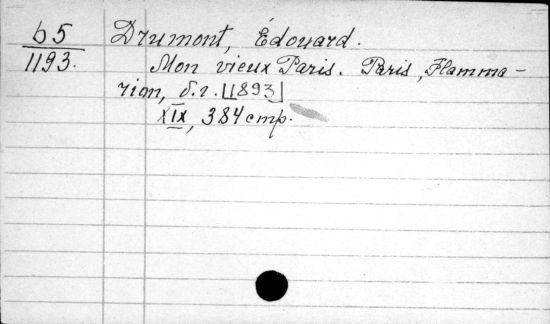 б5
1193.
Drumont, Édouard.
Mon vieux Paris. Paris, Flamma-
rion, б.г. [1893]
XIX, 384 стр.